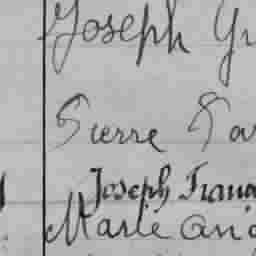 Joseph Yv
Pierre Ta
Joseph Franç
Marie Ang